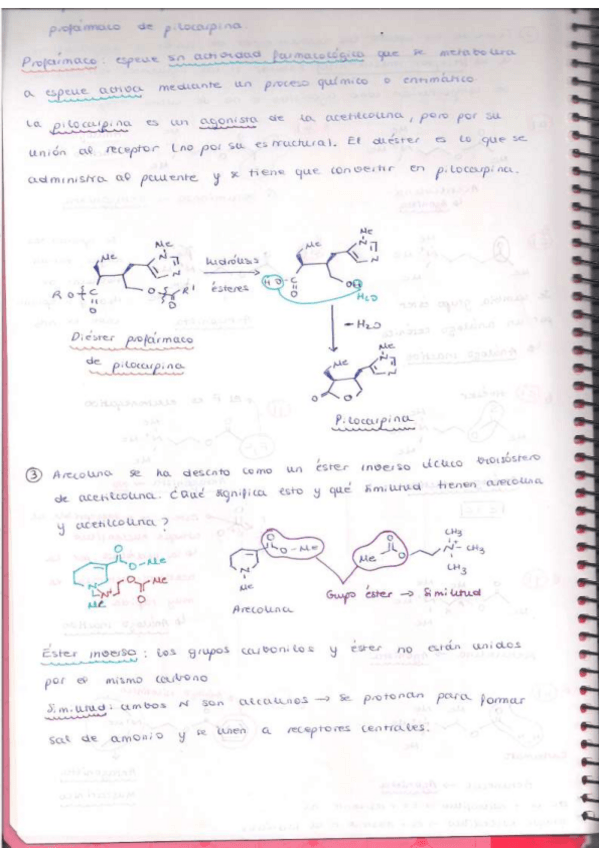 profármaco de pilocarpina.
Profármaco: especie sin actividad farmacológica que se metaboliza
a especie activa mediante un proceso químico o enzimático.
La pilocarpina es un agonista de la acetilcolina, pero por su
unión al receptor (no por su estructura). El diéster es lo que se
administra al paciente y se tiene que convertir en pilocarpina.
Me
Me
N
N
hidrólisis
ésteres
R O C O
O R'
O
Me
Me
N
N
HO C O
OH
H₂O
Diéster profármaco
de pilocarpina
- H₂O
Me
Me
N
N
O O
Pilocarpina
③ Arecolina se ha descrito como un éster inverso cíclico bioisóstero
de acetilcolina. ¿Qué significa esto y qué similitud tienen arecolina
y acetilcolina?
O
O-Me
N
Me
N+
O
O
Me
O
O-Me
N
Me
Arecolina
Me
O
O
N+
CH₃
CH₃
CH₃
Grupo éster → Similitud
Éster inverso: los grupos carbonilos y éster no están unidos
por el mismo carbono
Similitud: ambos N son alcalinos → se protonan para formar
sal de amonio y se unen a receptores centrales.